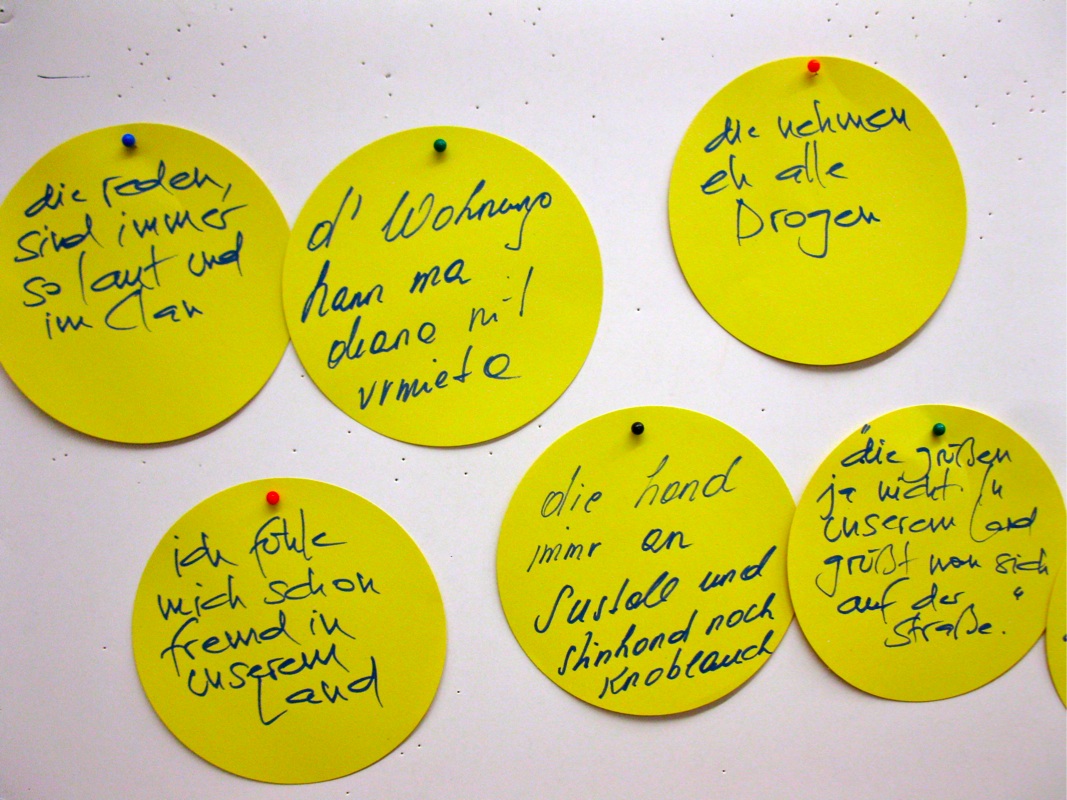 die reden,
sind immer
so laut und
im Clan
d' Wohnungo
kann ma
deana nit
vrmieta
die nehmen
eh alle
Drogen
ich fühle
mich schon
fremd in
unserem
Land
die hond
immr an
Sustall und
stinkond noch
Knoblauch
"die grüßen
ja nicht. In
unserem Land
grüßt man sich
auf der
Straße."